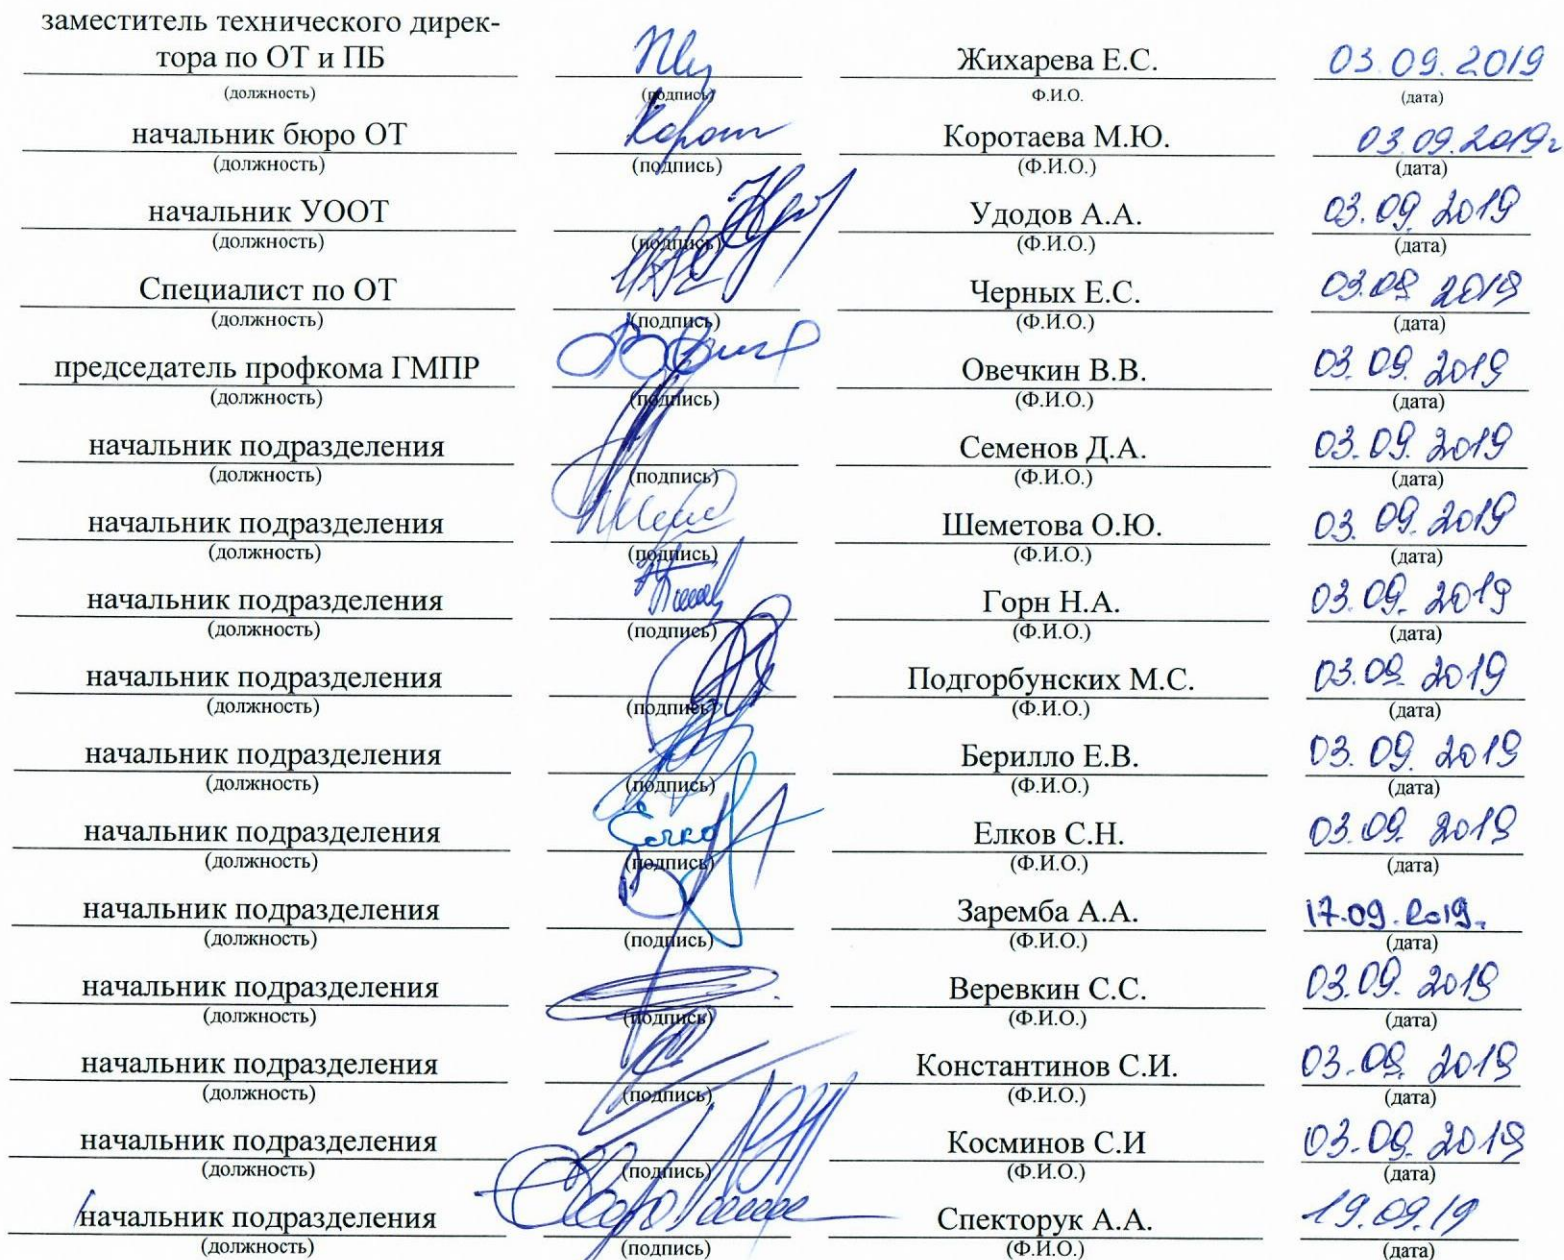 заместитель технического дирек-
тора по ОТ и ПБ Жихарева Е.С. 03.09.2019
(должность) (подпись) Ф.И.О. (дата)
начальник бюро ОТ Коротаева М.Ю. 03.09.2019г
(должность) (подпись) (Ф.И.О.) (дата)
начальник УООТ Удодов А.А. 03.09.2019
(должность) (подпись) (Ф.И.О.) (дата)
Специалист по ОТ Черных Е.С. 03.09.2019
(должность) (подпись) (Ф.И.О.) (дата)
председатель профкома ГМПР Овечкин В.В. 03.09.2019
(должность) (подпись) (Ф.И.О.) (дата)
начальник подразделения Семенов Д.А. 03.09.2019
(должность) (подпись) (Ф.И.О.) (дата)
начальник подразделения Шеметова О.Ю. 03.09.2019
(должность) (подпись) (Ф.И.О.) (дата)
начальник подразделения Горн Н.А. 03.09.2019
(должность) (подпись) (Ф.И.О.) (дата)
начальник подразделения Подгорбунских М.С. 03.09.2019
(должность) (подпись) (Ф.И.О.) (дата)
начальник подразделения Берилло Е.В. 03.09.2019
(должность) (подпись) (Ф.И.О.) (дата)
начальник подразделения Елков С.Н. 03.09.2019
(должность) (подпись) (Ф.И.О.) (дата)
начальник подразделения Заремба А.А. 17.09.2019.
(должность) (подпись) (Ф.И.О.) (дата)
начальник подразделения Веревкин С.С. 03.09.2019
(должность) (подпись) (Ф.И.О.) (дата)
начальник подразделения Константинов С.И. 03.09.2019
(должность) (подпись) (Ф.И.О.) (дата)
начальник подразделения Косминов С.И 03.09.2019
(должность) (подпись) (Ф.И.О.) (дата)
начальник подразделения Спекторук А.А. 19.09.19
(должность) (подпись) (Ф.И.О.) (дата)